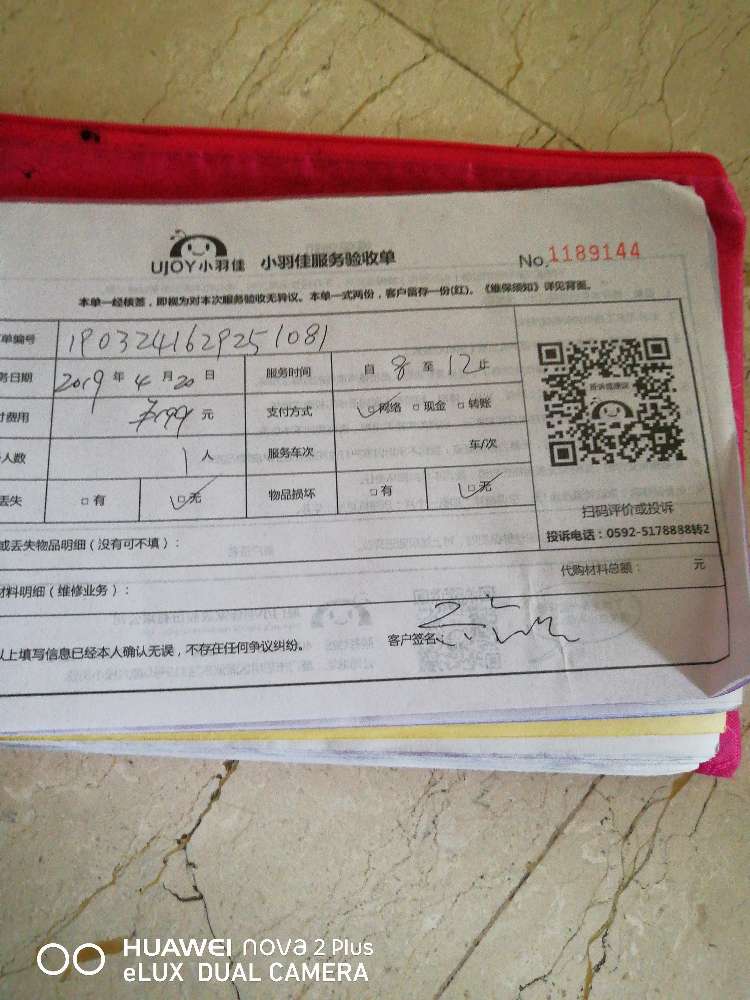 UJOY小羽佳 小羽佳服务验收单 No.1189144
本单一经核签，即视为对本次服务验收无异议。本单一式两份，客户留存一份(红)。《维保须知》详见背面。
单编号 1903241629251081
务日期 2019年4月20日 服务时间 自8至12止
付费用 元 支付方式 网络 现金 转账
人数 1人 服务车次 车/次
丢失 有 无 物品损坏 有 无
投诉或建议
扫码评价或投诉
投诉电话：0592-5178888转2
或丢失物品明细（没有可填）：
材料明细（维修业务）： 代购材料总额： 元
以上填写信息已经本人确认无误，不存在任何争议纠纷。 客户签名：
HUAWEI nova 2 Plus
eLUX DUAL CAMERA